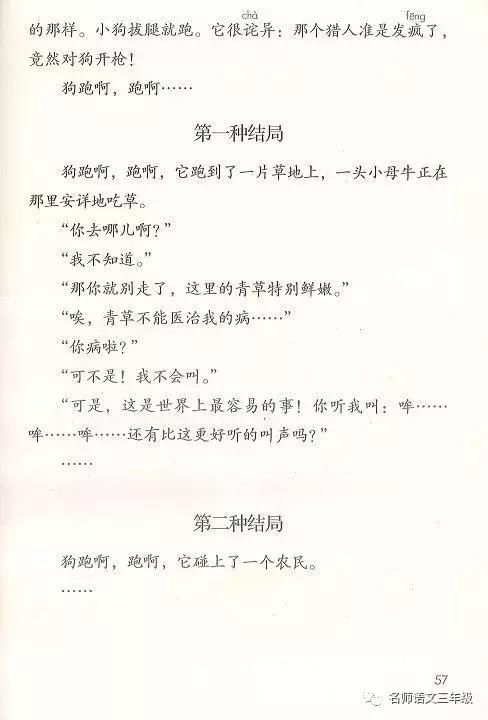 chà fēng
的那样。小狗拔腿就跑。它很诧异：那个猎人准是发疯了，
竟然对狗开枪！
狗跑啊，跑啊……
第一种结局
狗跑啊，跑啊，它跑到了一片草地上，一头小母牛正在
那里安详地吃草。
“你去哪儿啊？”
“我不知道。”
“那你就别走了，这里的青草特别鲜嫩。”
“唉，青草不能医治我的病……”
“你病啦？”
“可不是！我不会叫。”
“可是，这是世界上最容易的事！你听我叫：哞……
哞……哞……还有比这更好听的叫声吗？”
……
第二种结局
狗跑啊，跑啊，它碰上了一个农民。
……
57
名师语文三年级